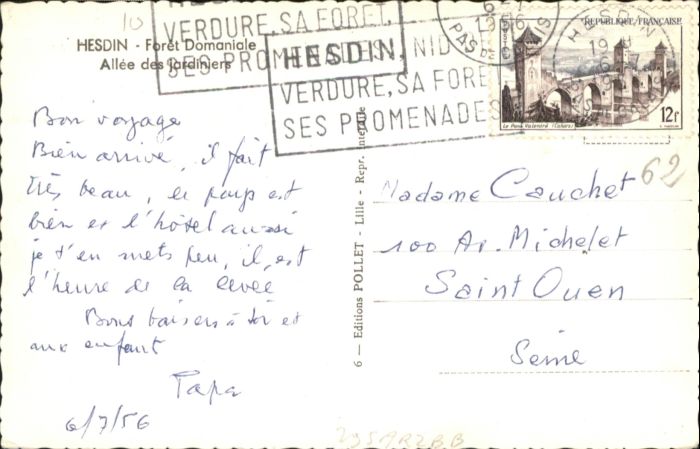 10
VERDURE, SA FORET,
SES PROMENADES
HESDIN, NID
VERDURE, SA FORE
SES PROMENADES
HESDIN
PAS
1956
REPUBLIQUE FRANÇAISE
Le Pont Valentré (Cahors)
12f
HESDIN - Forêt Domaniale
Allée des Jardiniers
Bon voyage
Bien arrivé, il fait
très beau, le pays est
bien et l'hôtel aussi
je t'en mets peu, il est
l'heure de la levée
Bons baisers à toi et
aux enfants
Papa
6/7/56
6 — Editions POLLET - Lille - Repr. Interdite
Madame Cauchet
62
100 Av. Michelet
Saint Ouen
Seine